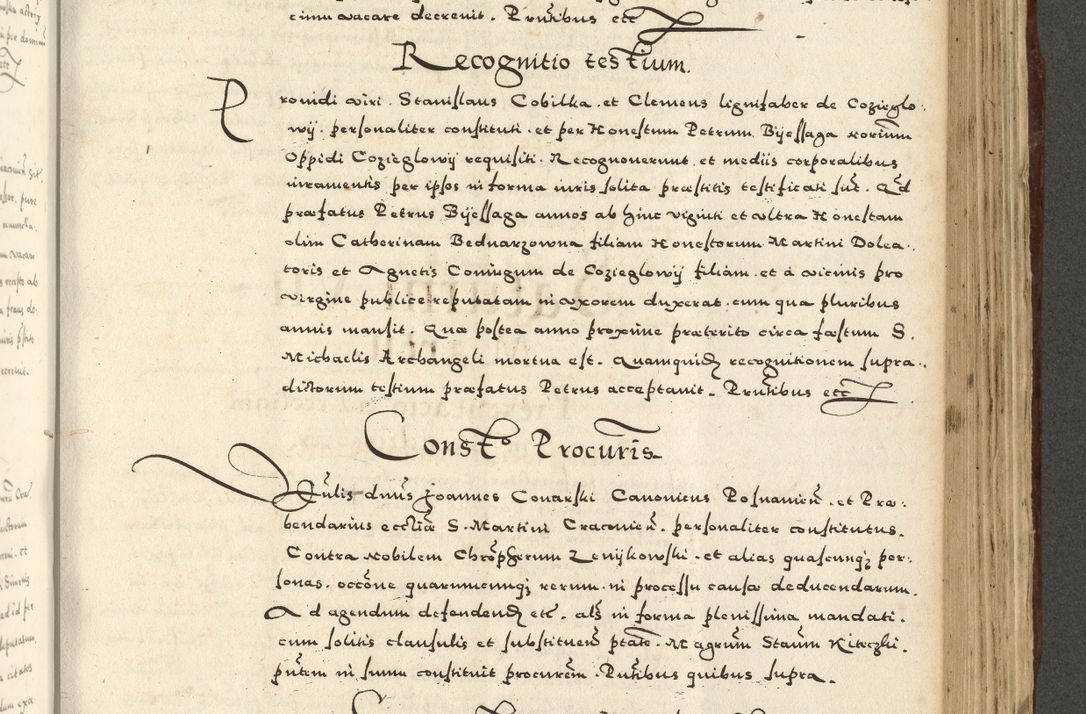 cimu vacare decreuit. Pntibus etc
Recognitio testium.
Prouidi viri. Stanislaus Cobilka. et Clemens lignifaber de Cozieglo.
wÿ. personaliter constituti. et per Honestum Petrum Byessaga
oppidi Cozieglowÿ requisiti. Recognouerunt et mediis corporalibus
iuramentis per ipsos in forma iuris solita præstitis testificati sut. Qd
præfatus Petrus Bÿessaga annos ab hinc viginti et vltra Honestam
olim Catherinam Bednarzowna filiam Honestorum Martini Dolea.
toris et Agnetis Coniugum de Cozieglowÿ filiam. et a vicinis pro
virgine publice reputatam in vxorem duxerat. cum qua pluribus
annis mansit. Quæ postea anno proxime præterito circa fæstum S.
Michaelis Archangeli mortua est. Quamquid recognitionem supra.
dictorum testium præfatus Petrus acceptauit. Pntibus etc
Consto Procuris
dnus Joannes Conarski Canonicus Posnanien. et Præ:
bendarius ecclia S. Martini Cracouien. personaliter constitutus.
Contra nobilem Chropherum Zenÿkowski. et alias quascunq per:
sonas. occone quarumcunq rerum. in processu causæ deducendarum.
Ad agendum defendend etc. als in forma plenissima mandati.
cum solitis clausulis et substituen ptate. Magrum Staum Kiteczki.
pntem in suum constituit procurem. Pntibus quibus supra.